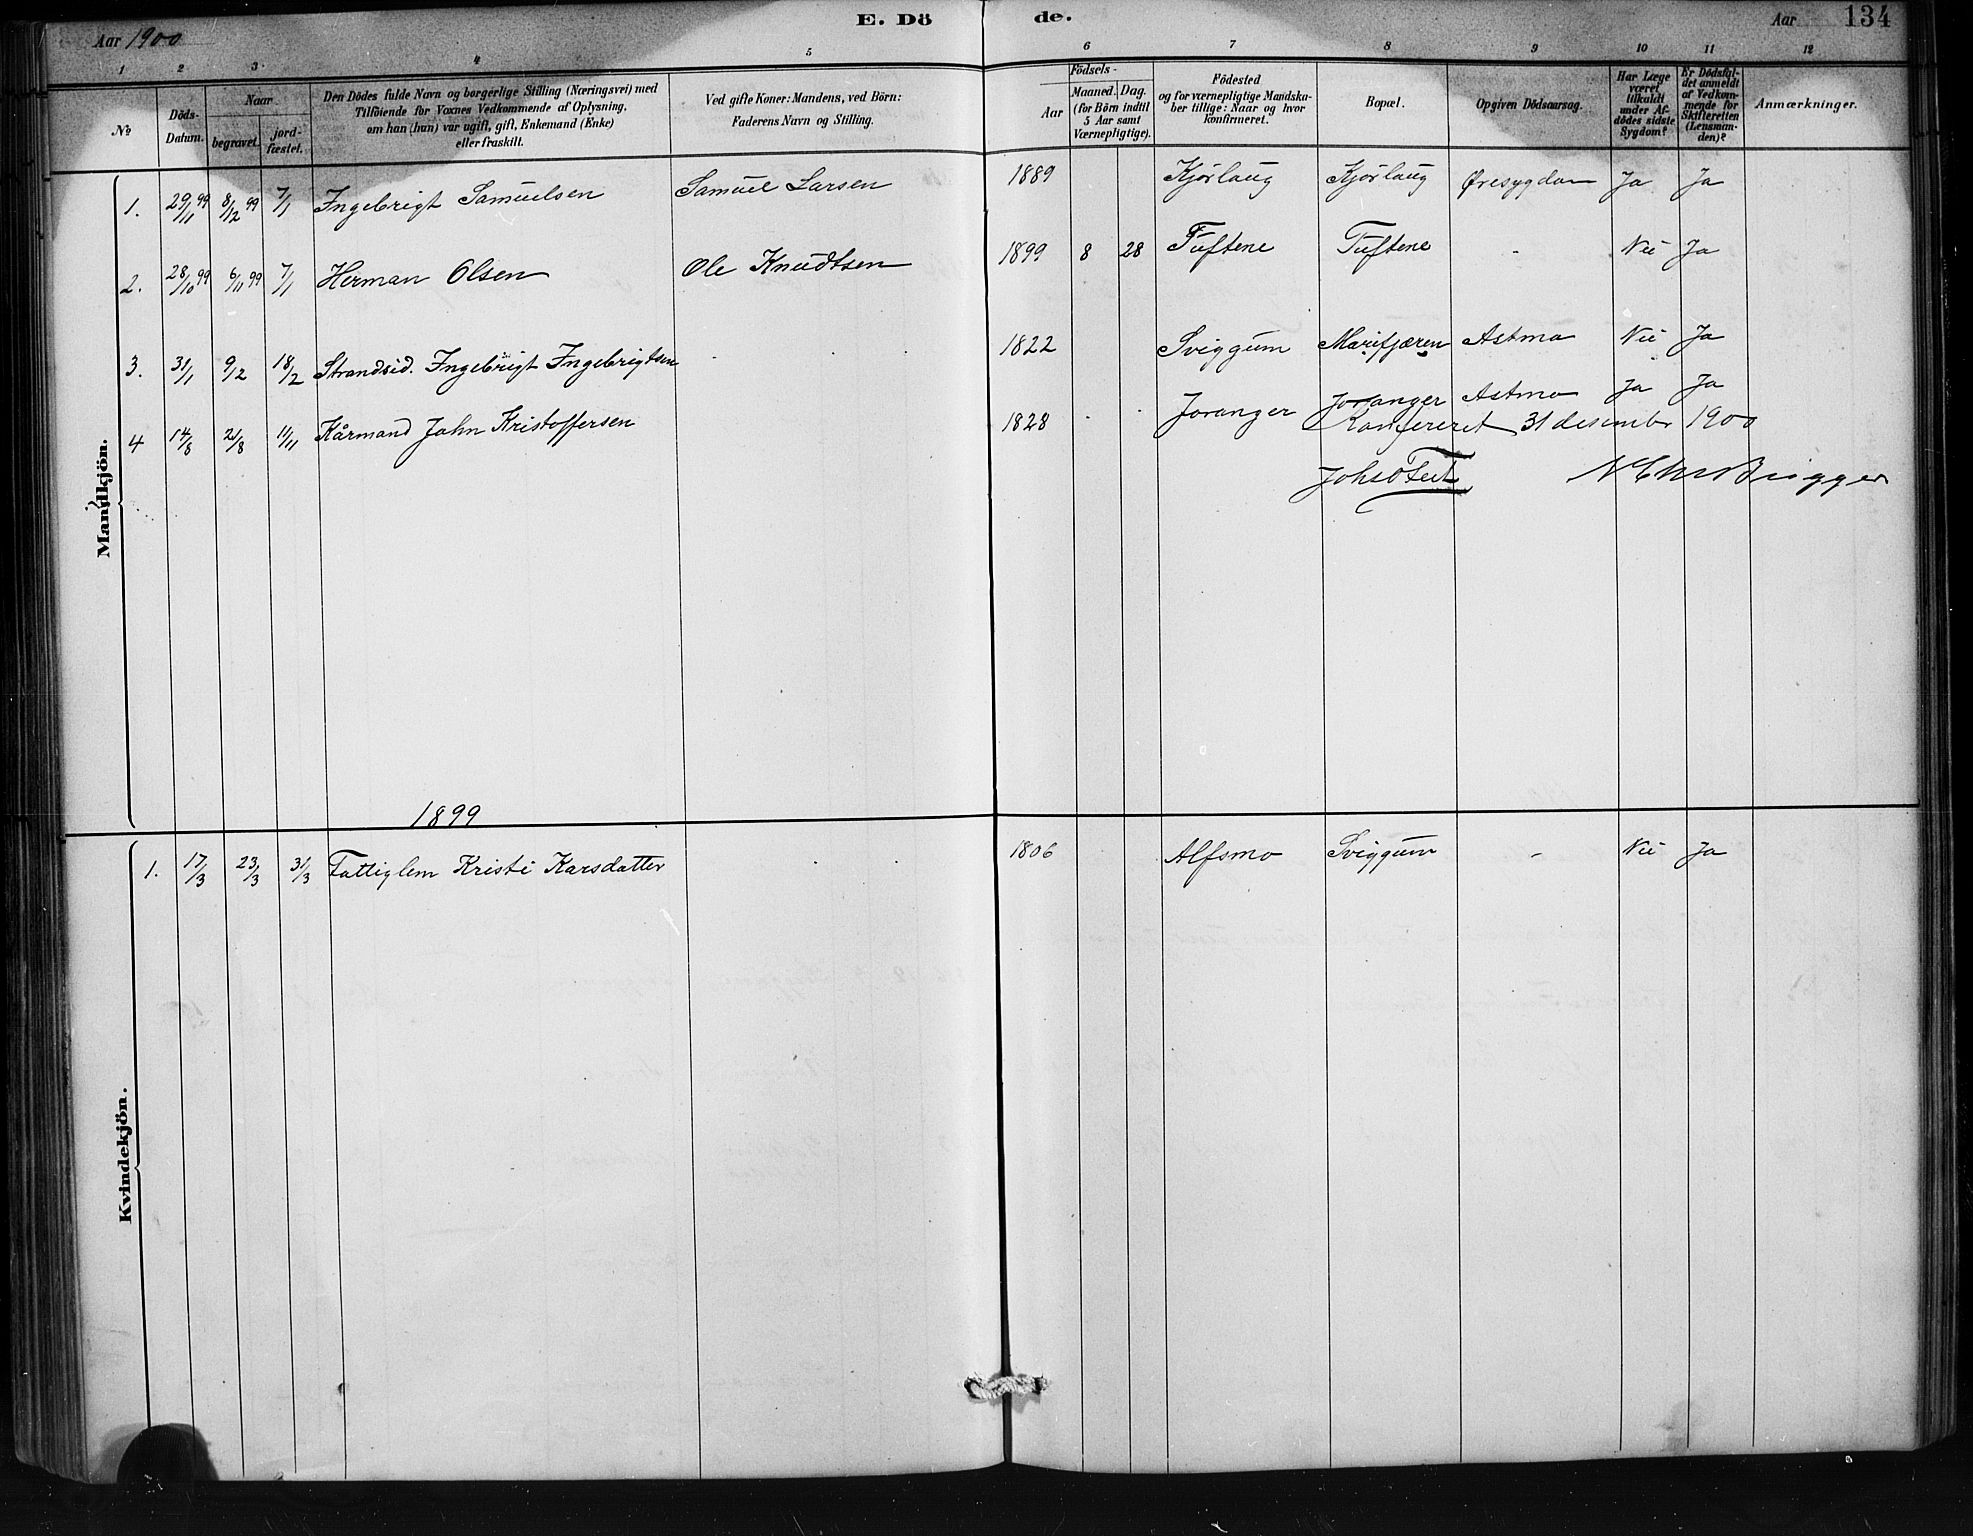 E. Dö de.
Aar 1900
Aar 134
1 2 3 4 5 6 7 8 9 10 11 12
No
Döds-Datum.
Naar
begravet.
jord-fæstet.
Den Dödes fulde Navn og borgerlige Stilling (Næringsvei) med
Tilföiende for Voxnes Vedkommende af Oplysning,
om han (hun) var ugift, gift, Enkemand (Enke)
eller fraskilt.
Ved gifte Koner: Mandens, ved Börn:
Faderens Navn og Stilling.
Födsels-
Aar
Maaned. Dag.
(for Börn indtil
5 Aar samt
Værnepligtige).
Födested
og for værnepligtige Mandska-
ber tillige: Naar og hvor
konfirmeret.
Bopæl.
Opgiven Dödsaarsag.
Har Læge
været
tilkaldt
under Af-
dödes sidste
Sygdom?
Er Dödsfal-
det anmeldt
af Vedkom-
mende for
Skifteretten
(Lensman-
den)?
Anmærkninger.
Mandkjön.
1. 29/11 99 8/12 99 7/1 Ingebrigt Samuelsen Samuel Larsen 1889 Kjørlaug Kjørlaug Øresygdom Ja Ja
2. 28/10 99 6/11 99 7/1 Herman Olsen Ole Knudtsen 1899 8 28 Tuftene Tuftene - Nei Ja
3. 31/1 9/2 18/2 Strandsid. Ingebrigt Ingebrigtsen 1822 Sviggum Marifjæren Astma Nei Ja
4 14/8 21/8 11/11 Kårmand John Kristoffersen 1828 Joranger Joranger Astma Ja Ja
Konfereret 31 desember 1900
1899
Kvindekjön.
1. 17/3 23/3 31/3 Fattiglem Kristi Larsdatter 1806 Alfsmo Sviggum - Nei Ja